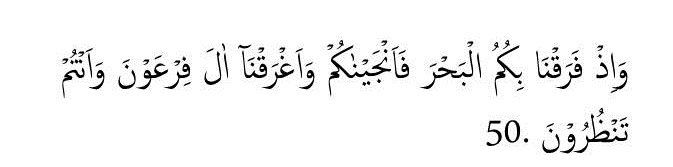 وَاِذْ فَرَقْنَا بِكُمُ الْبَحْرَ فَاَنْجَيْنٰكُمْ وَاَغْرَقْنَآ اٰلَ فِرْعَوْنَ وَاَنْتُمْ
تَنْظُرُوْنَ .50